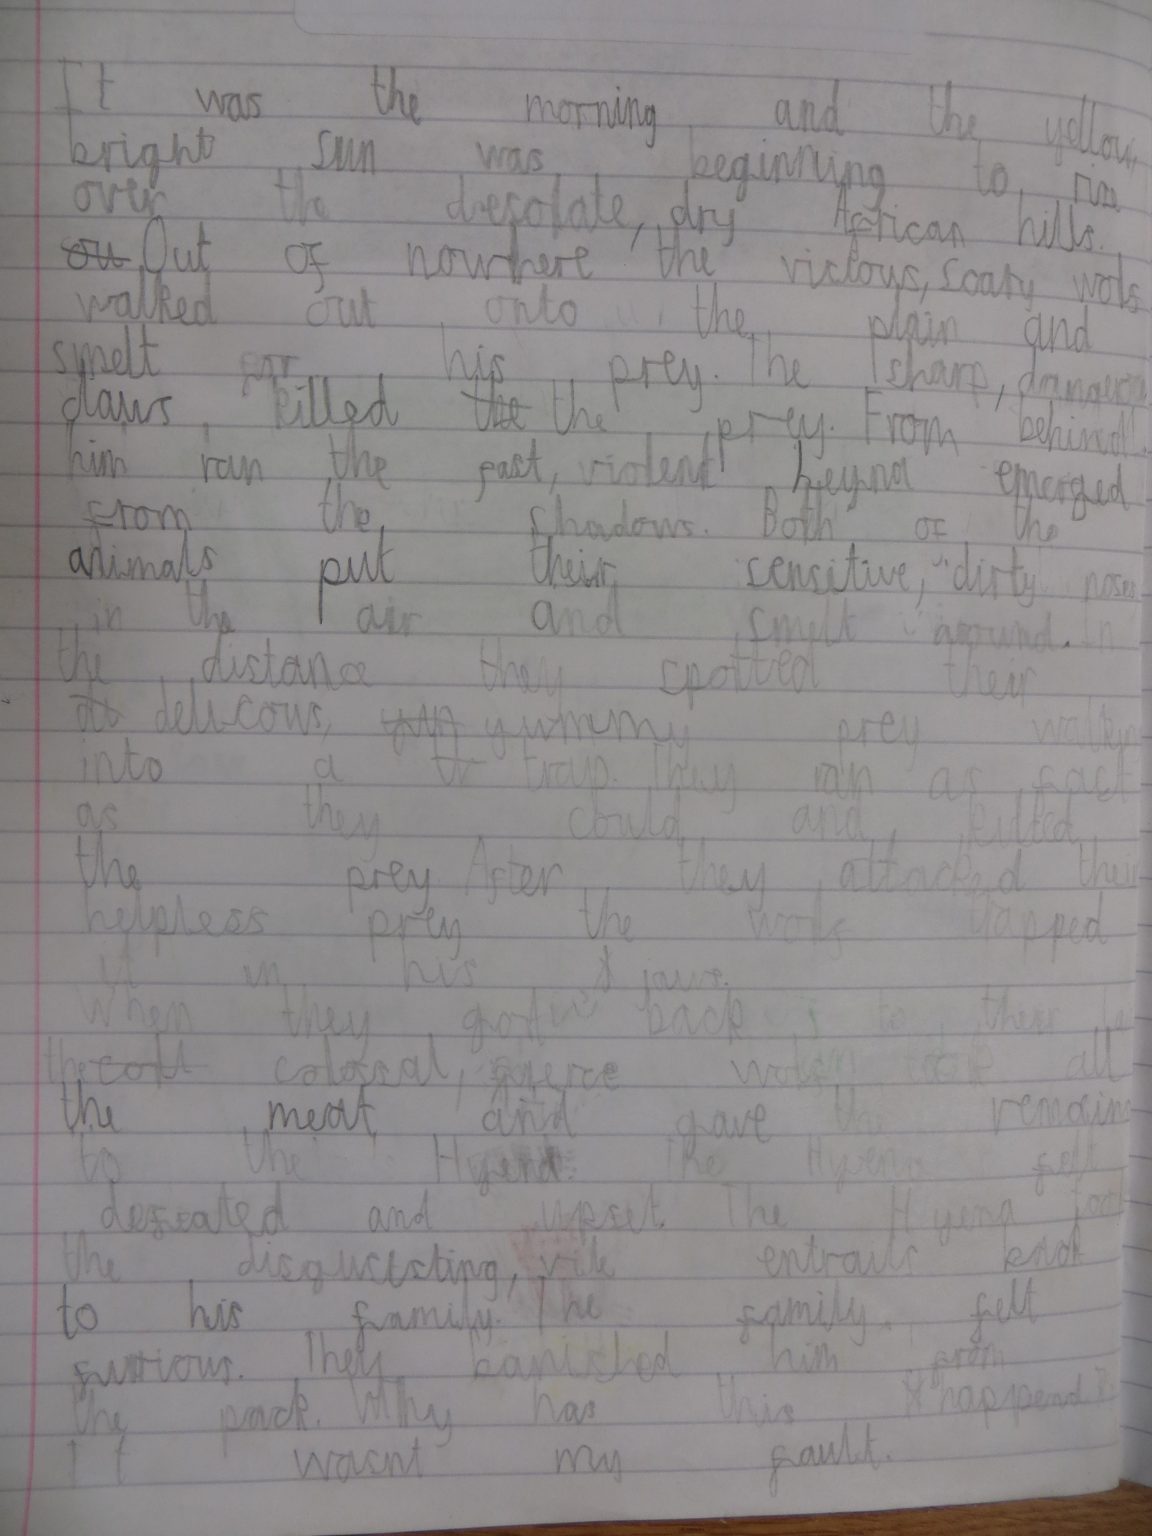 It was the morning and the yellow,
bright sun was beginning to
over the desolate, dry African hills.
Out of nowhere the vicious, scary
walked out onto the plain and
smelt for his prey. The sharp,
claws killed the the prey. From behind
him ran the fast, violent heyna emerged
from the shadows. Both of the
animals put their sensitive, dirty noses
in the air and smelt around. In
the distance they spotted their
delicous, yummy prey
into a trap. They ran as fast
as they could and killed
the prey. After they attacked their
helpless prey the trapped
it in his jaws.
When they back to their
the colossal, took all
the meat and gave the remains
to the Hyena. The Hyena felt
defeated and upset. The Hyena took
the disgusting, vile entrails
to his family. The family felt
furious. They banished him from
the pack. Why has this happend?
It wasnt my fault.